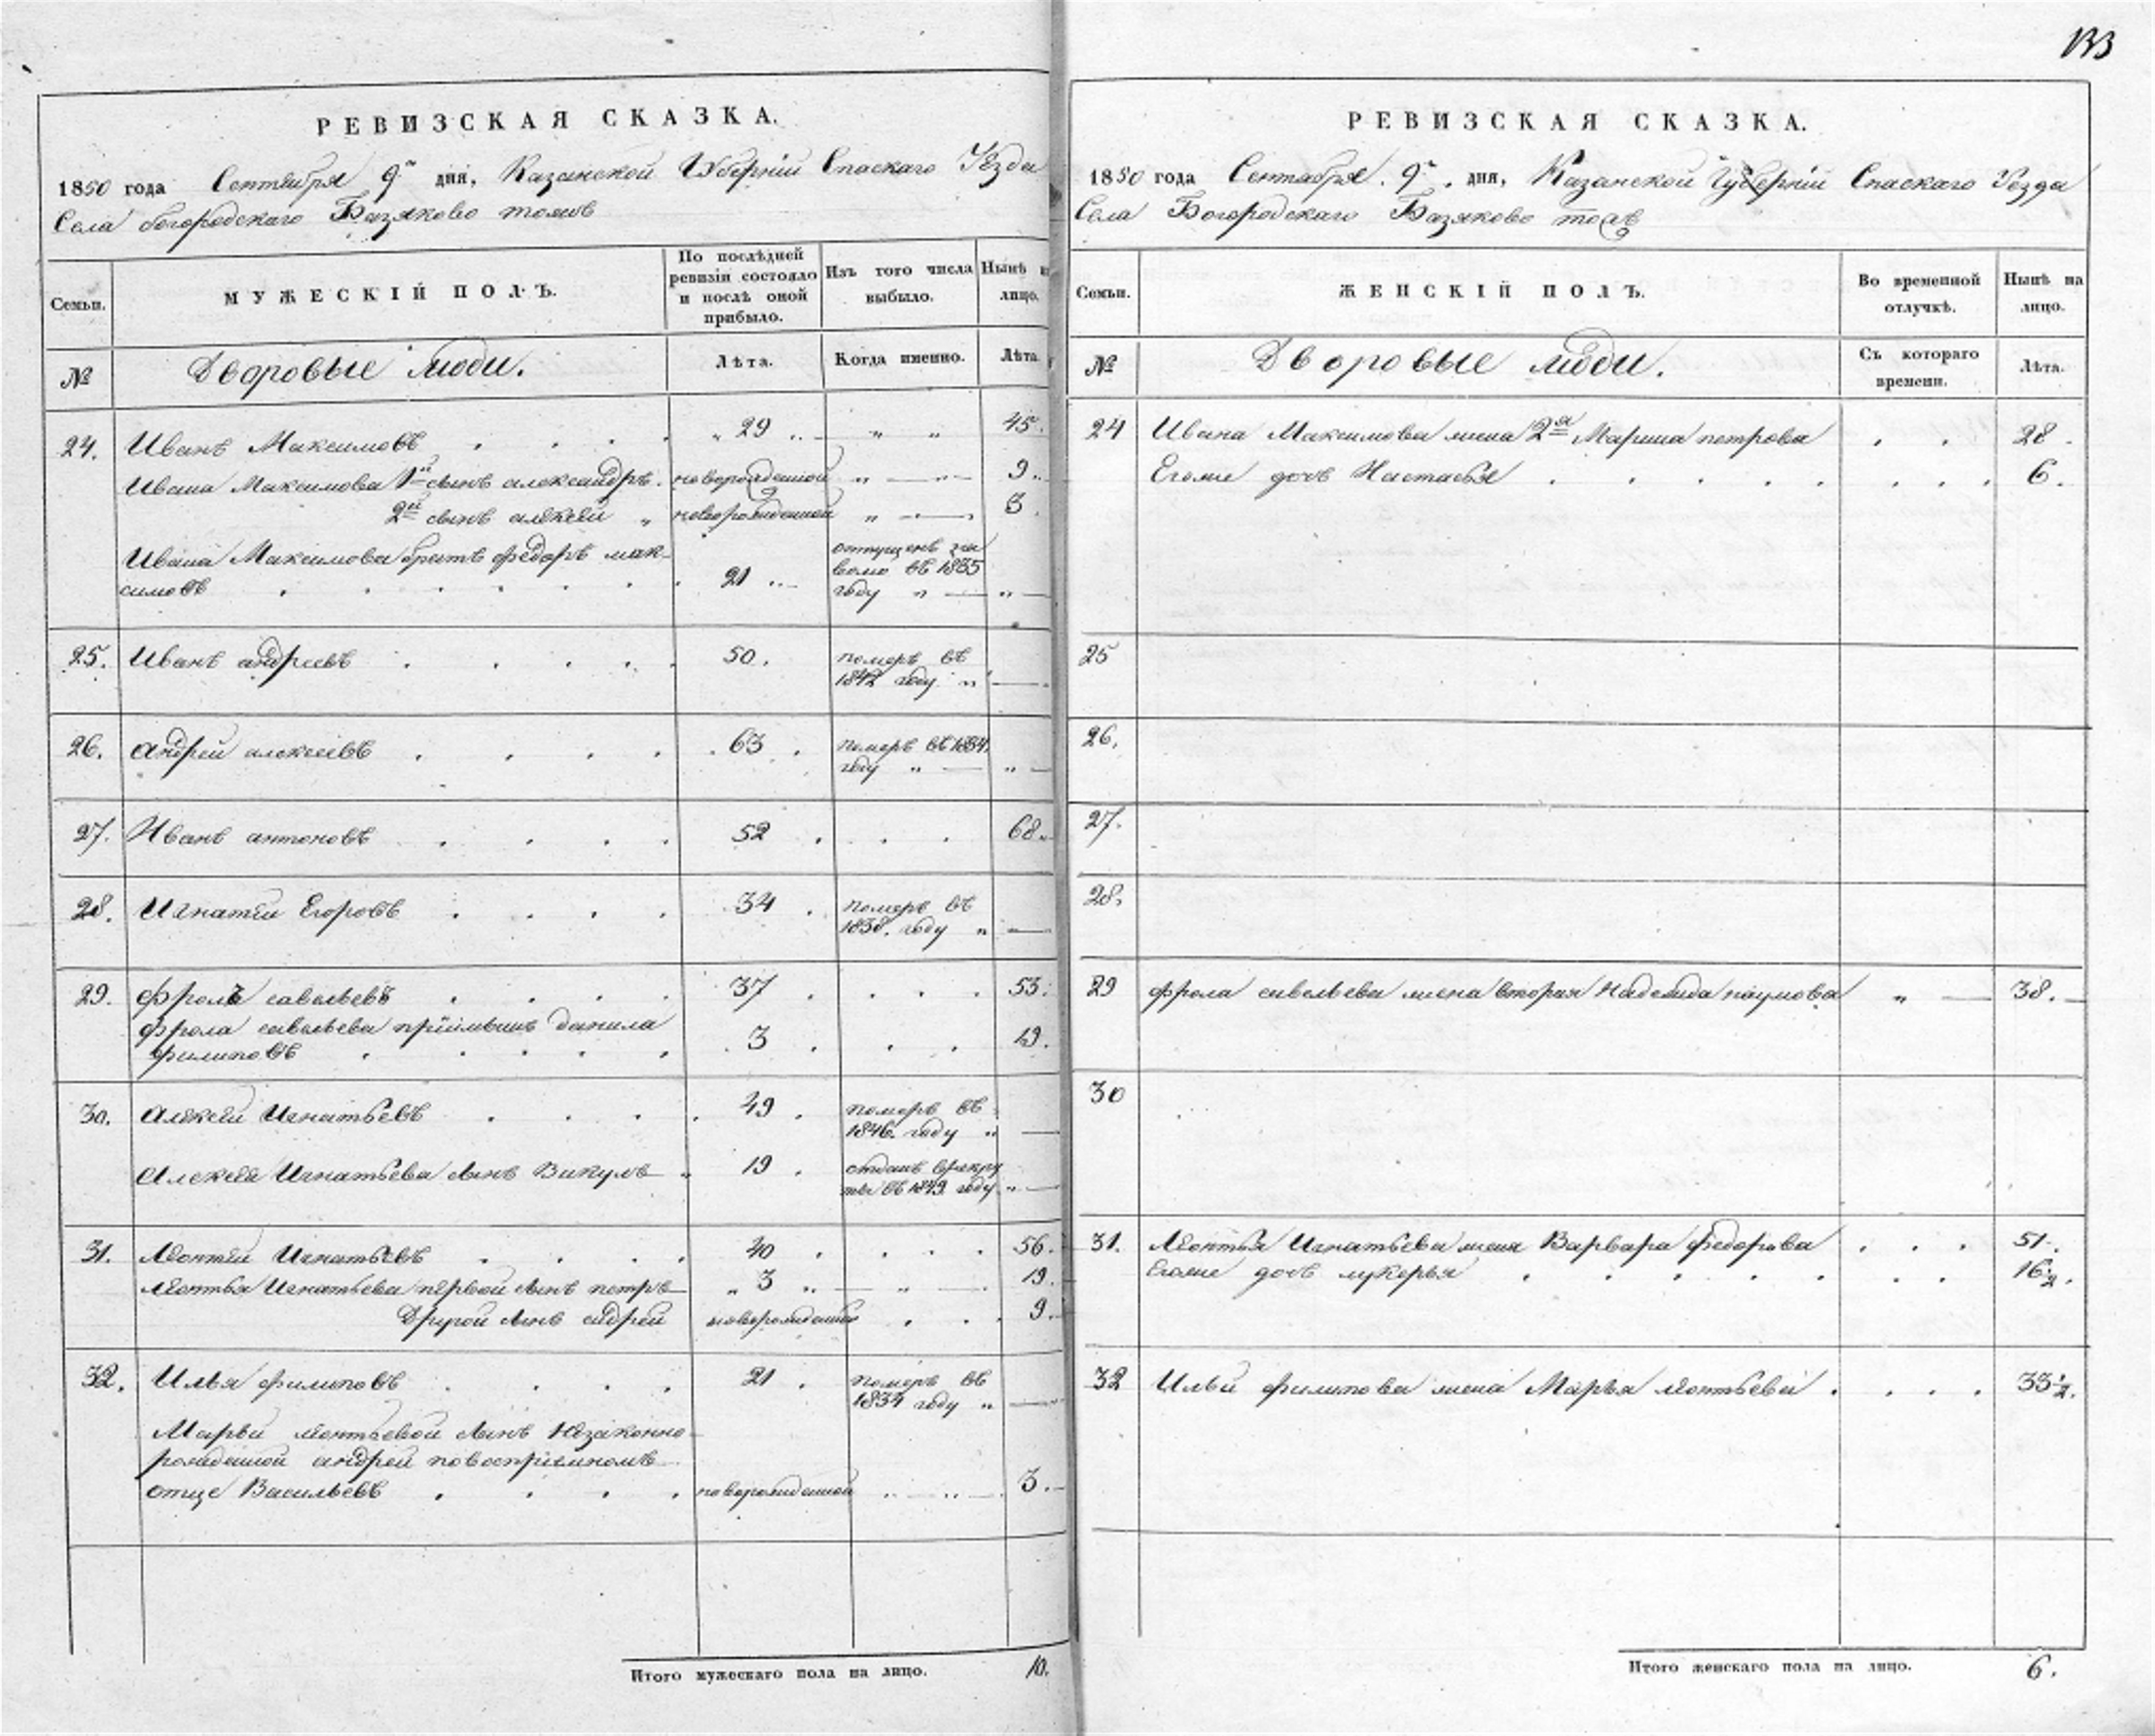 133
РЕВИЗСКАЯ СКАЗКА.
1850 года Сентября 9го дня, Казанской Губерніи Спаскаго Уѣзда
Села Богородскаго Базяково тожъ
Семьи.
МУЖЕСКІЙ ПОЛЪ.
По послѣдней ревизіи состояло и послѣ оной прибыло.
Изъ того числа выбыло.
Нынѣ на лицо.
№
Дворовые люди.
Лѣта.
Когда именно.
Лѣта.
24. Иванъ Максимовъ . . . . „ 29 „ „ „ 45.
Ивана Максимова 1й сынъ александръ. новорожденной „ — „ — 9.
2й сынъ алексѣй „ новорожденной „ — 3.
Ивана Максимова братъ федоръ мак-
симовъ . . . . . . 21 „ отпущенъ на волю въ 1835 году „ — „ —
25. Иванъ андреевъ . . . . 50. померъ въ 1842 году „ —
26. андрей алексеевъ . . . . 63. померъ въ 1834. году „ — „ —
27. Иванъ антоновъ . . . . 52 . . . 68.
28. Игнатей Егоровъ . . . . 34 . померъ въ 1838. году „ —
29. фролъ савельевъ . . . . 37 . . . . 53.
фрола савельева пріимышъ данила
филиповъ . . . . . 3 . . . 19.
30. алексѣй Игнатьевъ . . . . 49 . померъ въ 1846. году „ —
Алексѣя Игнатьева сынъ Викулъ „ 19 . отданъ врекруты въ 1849 году „ —
31. Леонтей Игнатьевъ . . . . 40 . . . . 56.
Леонтья Игнатьева первой сынъ петръ „ 3 „ — „ — 19.
Другой сынъ андрей новорожденной . . . 9.
32. Илья филиповъ . . . . 21 . померъ въ 1834 году „ —
Марьи леонтьевой сынъ незаконно-
рожденной андрей повоспріемномъ
отце Васильевъ . . . . новорожденной „ „ — 3.
Итого мужескаго пола на лицо. 10.
РЕВИЗСКАЯ СКАЗКА.
1850 года Сентября. 9го. дня, Казанской Губерніи Спаскаго Уезда
Села Богородскаго Базяково тожъ
Семьи.
ЖЕНСКІЙ ПОЛЪ.
Во временной отлучкѣ.
Нынѣ на лицо.
№
Дворовые люди.
Съ котораго времени.
Лѣта.
24 Ивана Максимова жена 2я Марина петрова . . 28.
Егоже дочь Настасья . . . . . . . . 6.
25
26.
27.
28.
29 фрола савельева жена вторая Надежда наумова „ — 38.
30
31. Леонтья Игнатьева жена Варвара федорова . . . 51.
Егоже дочь лукерья . . . . . . . 16½.
32 Ильи филипова жена Марья леонтьева . . . . 33½.
Итого женскаго пола на лицо. 6.